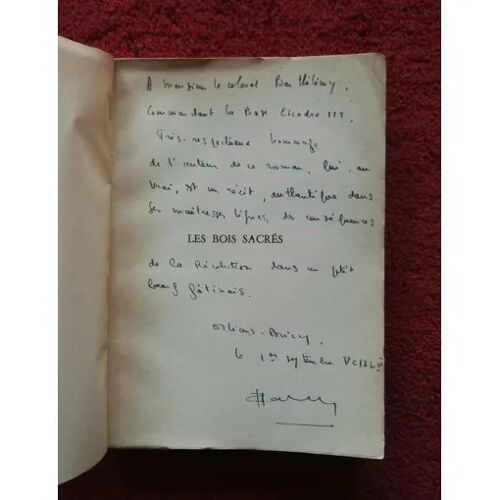 A Monsieur le colonel Barthélémy,
Commandant la Base Escadre 123
Très respectueux hommage
de l'auteur de ce roman, qui, au
vrai, est un récit, authentique dans
ses maîtresses lignes, des conséquences
LES BOIS SACRÉS
de la Révolution dans un petit
bourg gâtinais.
Orléans-Bricy,
le 1er septembre